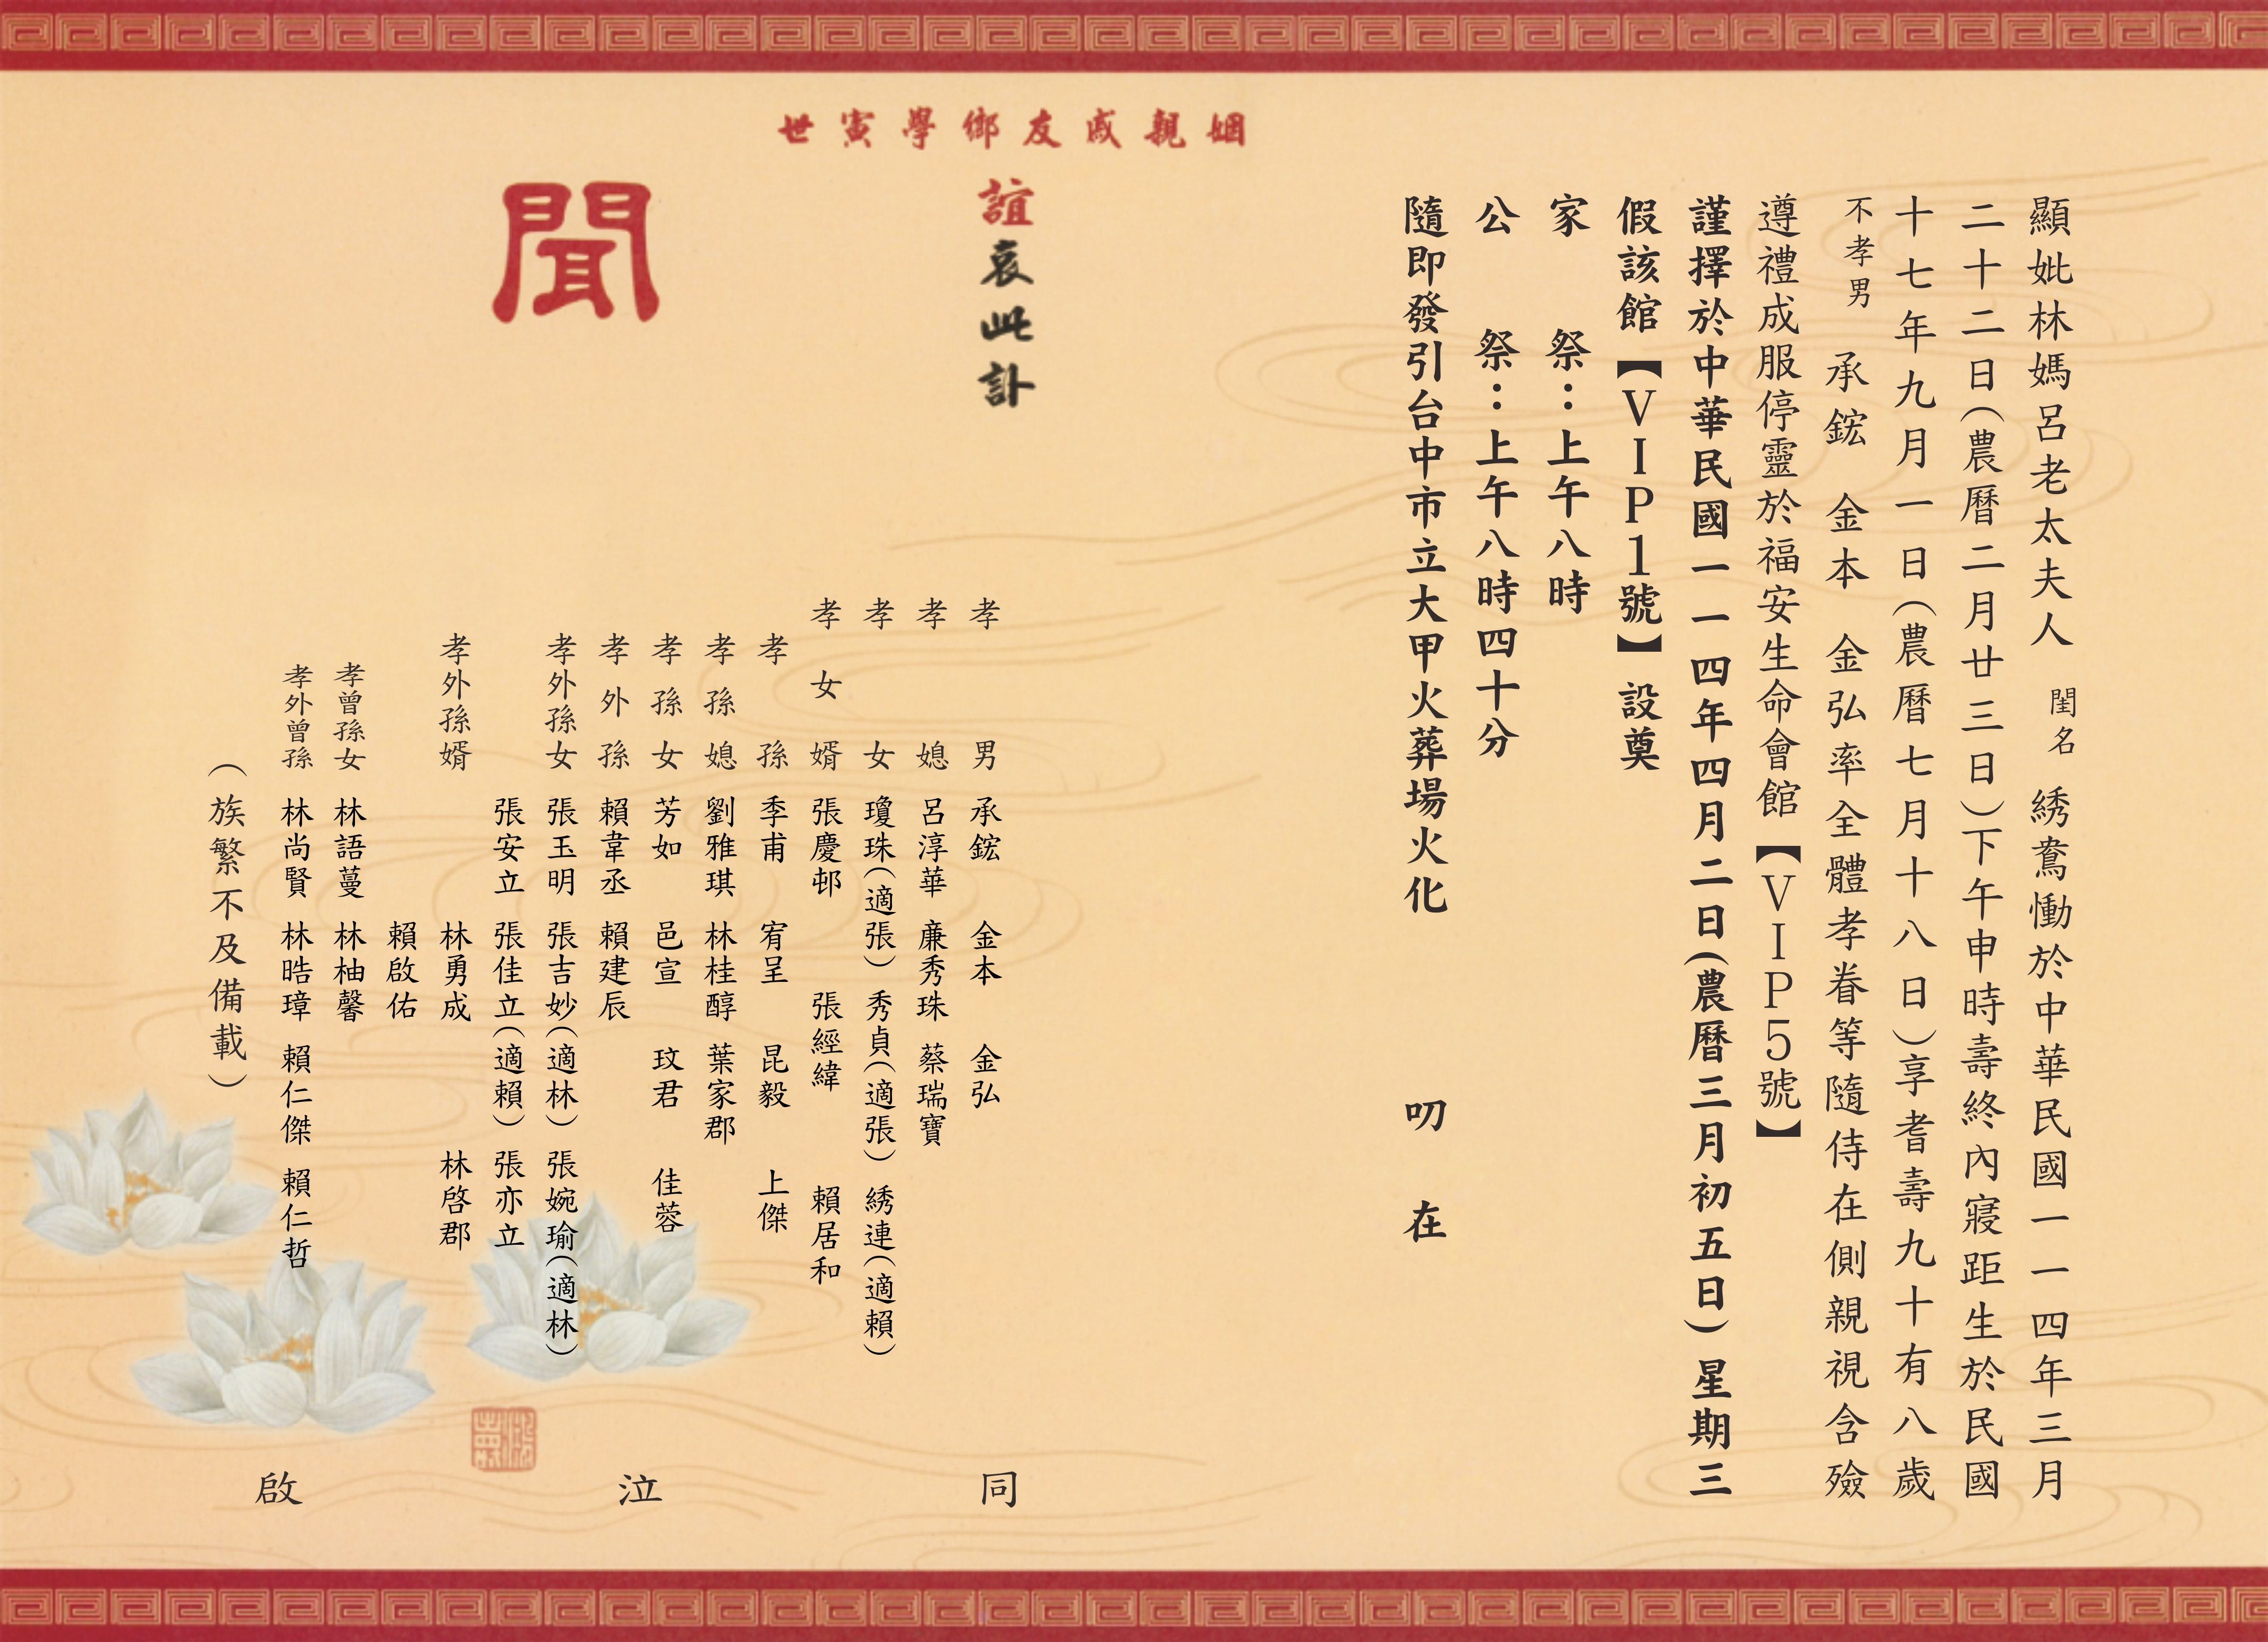 顯妣林媽呂老太夫人 閨名 綉鴦慟於中華民國一一四年三月
二十二日(農曆二月廿三日)下午申時壽終內寢距生於民國
十七年九月一日(農曆七月十八日)享耆壽九十有八歲
不孝男 承鋐 金本 金弘率全體孝眷等隨侍在側親視含殮
遵禮成服停靈於福安生命會館【VIP5號】
謹擇於中華民國一一四年四月二日(農曆三月初五日)星期三
假該館【VIP1號】設奠
家 祭:上午八時
公 祭:上午八時四十分
隨即發引台中市立大甲火葬場火化 叨 在
姻親戚友鄉學寅世
誼哀此訃
聞
孝男 承鋐 金本 金弘
孝媳 呂淳華 廉秀珠 蔡瑞寶
孝女 瓊珠(適張) 秀貞(適張) 綉連(適賴)
孝女婿 張慶邨 張經緯 賴居和
孝孫 季甫 宥呈 昆毅 上傑
孝孫媳 劉雅琪 林桂醇 葉家郡
孝孫女 芳如 邑宣 玟君 佳蓉
孝外孫 賴韋丞 賴建辰
孝外孫女 張玉明 張吉妙(適林) 張婉瑜(適林)
張安立 張佳立(適賴) 張亦立
孝外孫婿 林勇成 林啓郡
賴啟佑
孝曾孫女 林語蔓 林柚馨
孝外曾孫 林尚賢 林晧璋 賴仁傑 賴仁哲
(族繁不及備載)
同 泣 啟